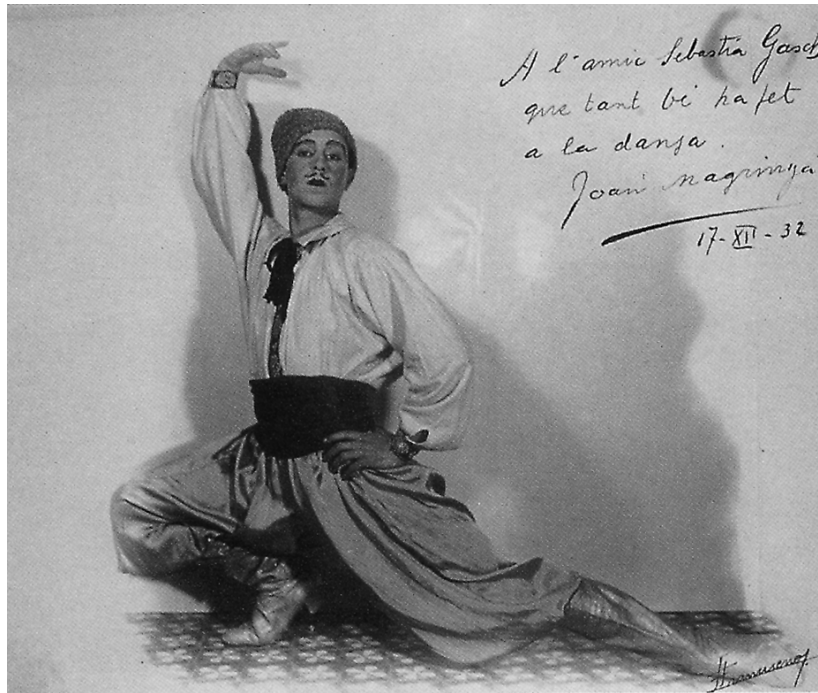 A l'amic Sebastià Gasch
que tant bé ha fet
a la dansa.
Joan Magrinyà
17-XII-32